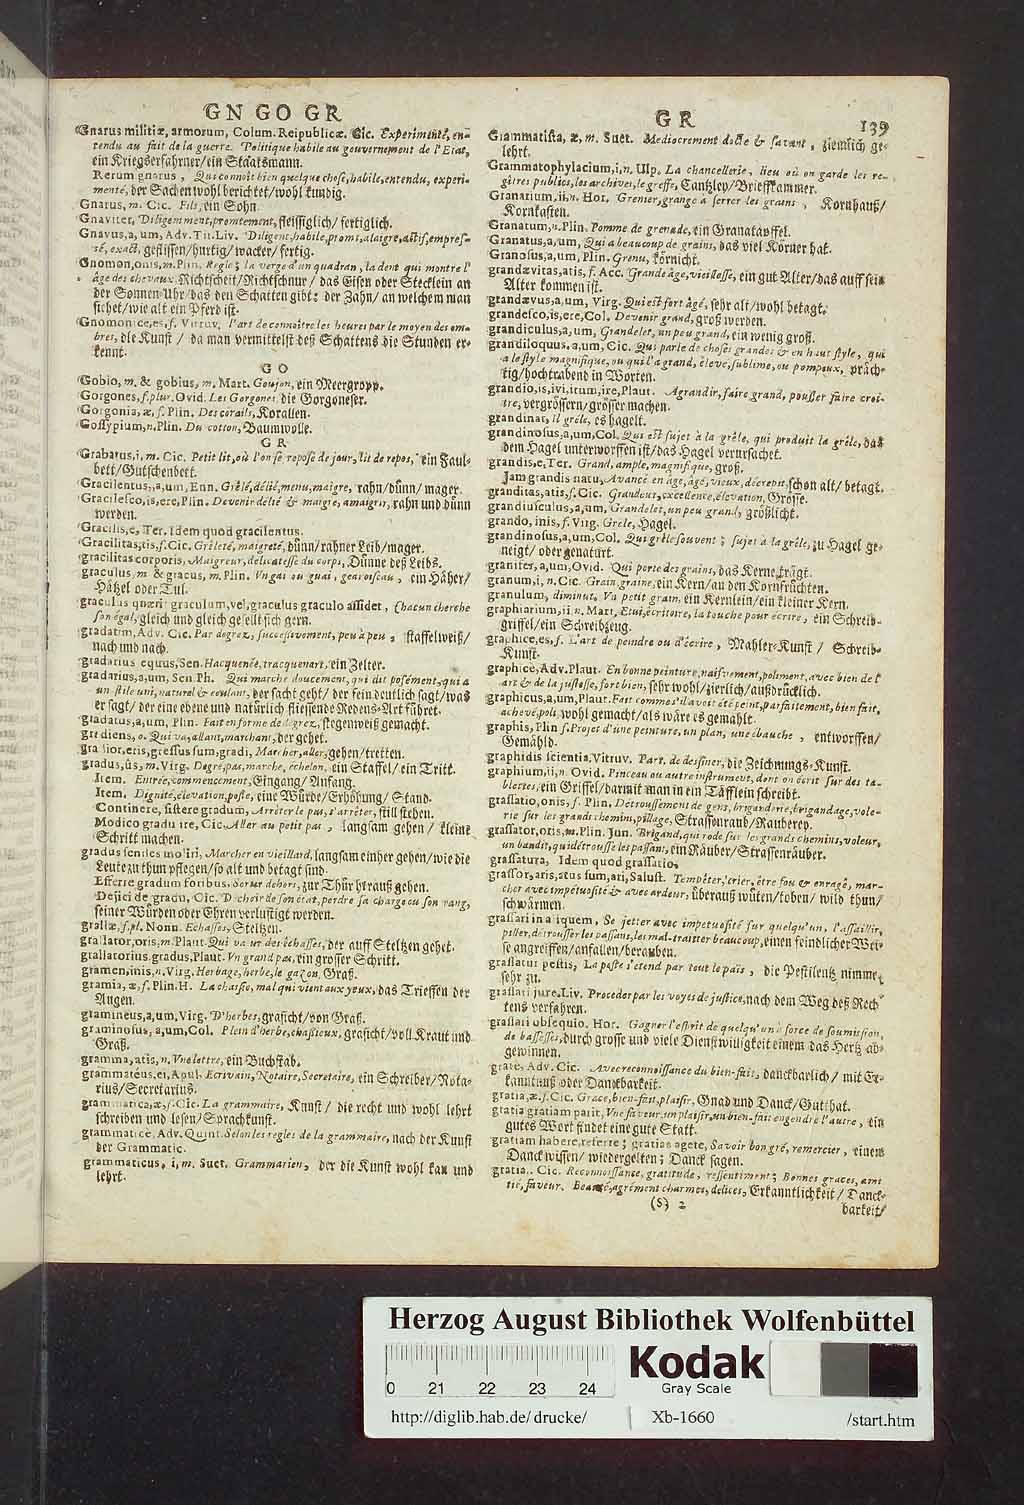 GN GO GR
Gnarus militiæ, armorum, Colum. Reipublicæ. Cic. Experimenté, en-
tendu au fait de la guerre. Politique habile au gouvernement de l'Etat,
ein Kriegserfahrner/ein Staatsmann.
Rerum gnarus, Qui connoît bien quelque chose, habile, entendu, experi-
menté, der Sachen wohl berichtet/wohl kundig.
Gnatus, m. Cic. Fils, ein Sohn.
Gnaviter, Diligemment, promtement, fleissiglich/fertiglich.
Gnavus, a, um, Adv. Tit. Liv. Diligent, habile, promt, alaigre, actif, empres-
sé, exact, geflissen/hurtig/wacker/fertig.
Gnomon, onis, m. Plin. Regle; la verge d'un quadran, la dent qui montre l'
âge des chevaux. Richtscheit/Richtschnur/das Eisen oder Stecklein an
der Sonnen-Uhr/das den Schatten gibt: der Zahn/an welchem man
sihet/wie alt ein Pferd ist.
Gnomonice, es, f. Vitruv. l'art de connoître les heures par le moyen des om-
bres, die Kunst/da man vermittelst deß Schattens die Stunden er-
kennt.
GO
Gobio, m. & gobius, m. Mart. Goujon, ein Meergropp.
Gorgones, f. plur. Ovid. Les Gorgones, die Gorgoneser.
Gorgonia, æ, f. Plin. Des corails, Korallen.
Gossypium, n. Plin. Du cotton, Baumwolle.
GR
Grabatus, i, m. Cic. Petit lit, où l'on se repose de jour, lit de repos, ein Faul-
bett/Gutschenbett.
Gracilentus, a, um, Enn. Grêlé, délié, menu, maigre, rahn/dünn/mager.
Gracilesco, is, ere, Plin. Devenir délié & maigre, amaigrir, rahn und dünn
werden.
Gracilis, e, Ter. Idem quod gracilentus.
Gracilitas, tis, f. Cic. Grêleté, maigreté, dünn/rahner Leib/mager.
gracilitas corporis, Maigreur, delicatesse du corps, Dünne deß Leibs.
graculus, m. & gracus, m. Plin. Un gas ou guai, gearoiseau, ein Häher/
Hätzel oder Tul.
graculus quæri graculum, vel, graculus graculo assidet, Chacun cherche
son égal, gleich und gleich gesellt sich gern.
gradatim, Adv. Cic. Par degrez, successivement, peu à peu, staffelweiß/
nach und nach.
gradarius equus, Sen. Hacquenée, tracquenart, ein Zelter.
gradarius, a, um, Sen. Ph. Qui marche doucement, qui dit posément, qui a
un stile uni, naturel & coulant, der sacht geht/der fein deutlich sagt/was
er sagt/der eine ebene und natürlich fliessende Redens-Art führet.
gradatus, a, um, Plin. Fait en forme de degrez, stegenweiß gemacht.
gradiens, o. Qui va, allant, marchant, der gehet.
gradior, eris, gressus sum, gradi, Marcher, aller, gehen/tretten.
gradus, ûs, m. Virg. Degré, pas, marche, échelon, ein Staffel/ein Tritt.
Item. Entrée, commencement, Eingang/Anfang.
Item. Dignité, élevation, poste, eine Würde/Erhöhung/Stand.
Continere, sistere gradum, Arrêter le pas, s'arrêter, still stehen.
Modico gradu ire, Cic. Aller au petit pas, langsam gehen/kleine
Schritt machen.
gradus seniles moliri, Marcher en vieillard, langsam einher gehen/wie die
Leute zu thun pflegen/so alt und betagt sind.
Efferre gradum foribus. Sortir dehors, zur Thür hrauß gehen.
Dejici de gradu, Cic. Dechoir de son état, perdre sa charge ou son rang,
seiner Würden oder Ehren verlustigt werden.
grallæ, f. pl. Nonn. Echasses, Steltzen.
grallator, oris, m. Plaut. Qui va sur des échasses, der auff Steltzen gehet.
grallatorius gradus, Plaut. Un grand pas, ein grosser Schritt.
gramen, inis, n. Virg. Herbage, herbe, le gazon, Graß.
gramia, æ, f. Plin. H. La chassie, mal qui vient aux yeux, das Trieffen der
Augen.
gramineus, a, um, Virg. D'herbes, grasicht/von Graß.
graminosus, a, um, Col. Plein d'herbe, chassieux, grasicht/voll Kraut und
Graß.
gramma, atis, n. Une lettre, ein Buchstab.
grammatéus, ei, Apul. Ecrivain, Notaire, Secretaire, ein Schreiber/Nota-
rius/Secretarius.
grammatica, æ, f. Cic. La grammaire, Kunst/die recht und wohl lehrt
schreiben und lesen/Sprachkunst.
grammaticè, Adv. Quint. Selon les regles de la grammaire, nach der Kunst
der Grammatic.
grammaticus, i, m. Suet. Grammarien, der die Kunst wohl kan und
lehrt.
GR 139
Grammatista, æ, m. Suet. Mediocrement docte & savant, ziemlich ge-
lehrt.
Grammatophylacium, i, n, Ulp. La chancellerie, lieu où on garde les re-
gîtres publics, les archives, le greffe, Cantzley/Brieffkammer.
Granarium, ii, n. Hor. Grenier, grange à serrer les grains, Kornhauß/
Kornkasten.
Granatum, n. Plin. Pomme de grenade, ein Granatapffel.
Granatus, a, um, Qui a beaucoup de grains, das viel Körner hat.
Granosus, a, um, Plin. Grenu, körnicht.
grandævitas, atis, f. Acc. Grande âge, vieillesse, ein gut Alter/das auff sein
Alter kommen ist.
grandævus, a, um, Virg. Qui est fort âgé, sehr alt/wohl betagt.
grandesco, is, ere, Col. Devenir grand, groß werden.
grandiculus, a, um, Grandelet, un peu grand, ein wenig groß.
grandiloquus, a, um, Cic. Qui parle de choses grandes & en haut style, qui
a le style magnifique, ou qui l'a grand, élevé, sublime, ou pompeux, präch-
tig/hochtrabend in Worten.
grandio, is, ivi, itum, ire, Plaut. Agrandir, faire grand, pousser faire croi-
tre, vergrössern/grösser machen.
grandinat, il grêle, es hagelt.
grandinosus, a, um, Col. Qui est sujet à la grêle, qui produit la grêle, das
dem Hagel unterworffen ist/das Hagel verursachet.
grandis, e, Ter. Grand, ample, magnifique, groß.
Jam grandis natu, Avancé en âge, âgé, vieux, décrepit, schon alt/betagt.
granditas, atis, f. Cic. Grandeur, excellence, élevation, Grösse.
grandiusculus, a, um, Grandelet, un peu grand, größlicht.
grando, inis, f. Virg. Grêle, Hagel.
grandinosus, a, um, Col. Qui grêle souvent; sujet à la grêle, zu Hagel ge-
neigt/oder genaturt.
granifer, a, um, Ovid. Qui porte des grains, das Kerne trägt.
granum, i, n. Cic. Grain, graine, ein Kern/an den Kornfrüchten.
granulum, diminut. Un petit grain, ein Kernlein/ein kleiner Kern.
graphiarium, ii, n. Mart. Etui, écritoire, la touche pour écrire, ein Schreib-
griffel/ein Schreibzeug.
graphice, es, f. L'art de peindre ou d'écrire, Mahler-Kunst/Schreib-
Kunst.
graphicè, Adv. Plaut. En bonne peinture, naifvement, poliment, avec bien de l'
art & de la justesse, fort bien, sehr wohl/zierlich/außdrücklich.
graphicus, a, um, Plaut. Fait comme s'il avoit été peint, parfaitement, bien fait,
achevé, poli, wohl gemacht/als wäre es gemahlt.
graphis, Plin f. Projet d'une peinture, un plan, une ébauche, entworffen/
Gemähld.
graphidis scientia, Vitruv. Part. de dessiner, die Zeichnungs-Kunst.
graphium, ii, n. Ovid. Pinceau ou autre instrument, dont on écrit sur des ta-
blettes, ein Griffel/damit man in ein Täfflein schreibt.
grassatio, onis, f. Plin. Détroussement de gens, briganderie, brigandage, vole-
rie sur les grands chemins, pillage, Strassenraub/Rauberey.
grassator, oris, m. Plin. Jun. Brigand, qui rode sur les grands chemins, voleur,
un bandit, qui détrousse les passans, ein Räuber/Strassenräuber.
grassatura, Idem quod grassatio.
grassor, aris, atus sum, ari, Salust. Tempêter, crier, être fou & enragé, mar-
cher avec impetuosité & avec ardeur, überauß wüten/toben/wild thun/
schwärmen.
grassari in aliquem, Se jetter avec impetuosité sur quelqu'un, l'assaillir,
piller, détrousser les passans, les mal-traitter beaucoup, einen feindlicher Wei-
se angreiffen/anfallen/berauben.
grassatur pestis, La peste s'etend par tout le païs, die Pestilentz nimmet
sehr zu.
grassari jure, Liv. Proceder par les voyes de justice, nach dem Weg deß Rech-
tens verfahren.
grassari obsequio. Hor. Gagner l'esprit de quelqu'un à force de soumission,
de bassesses, durch grosse und viele Dienstwilligkeit einem das Hertz ab-
gewinnen.
grate, Adv. Cic. Avec reconnoissance du bien-fait, danckbarlich/mit Er-
kanntnuß oder Danckbarkeit.
gratia, æ. f. Cic. Grace, bien-fait, plaisir, Gnad und Danck/Gutthat.
gratia gratiam parit, Une faveur, un plaisir, un bien-fait engendre l'autre, ein
gutes Wort findet eine gute Statt.
gratiam habere, referre; gratias agere, Savoir bon gré, remercier, einem
Danck wissen/wiedergelten; Danck sagen.
gratia. Cic. Reconnoissance, gratitude, ressentiment; Bonnes graces, ami
tié, faveur. Beauté, agrément charmes, delices, Erkanntlichkeit/Danck-
(S) 2 barkeit/
Herzog August Bibliothek Wolfenbüttel
Kodak
Gray Scale
0 21 22 23 24
http://diglib.hab.de/drucke/ Xb-1660 /start.htm